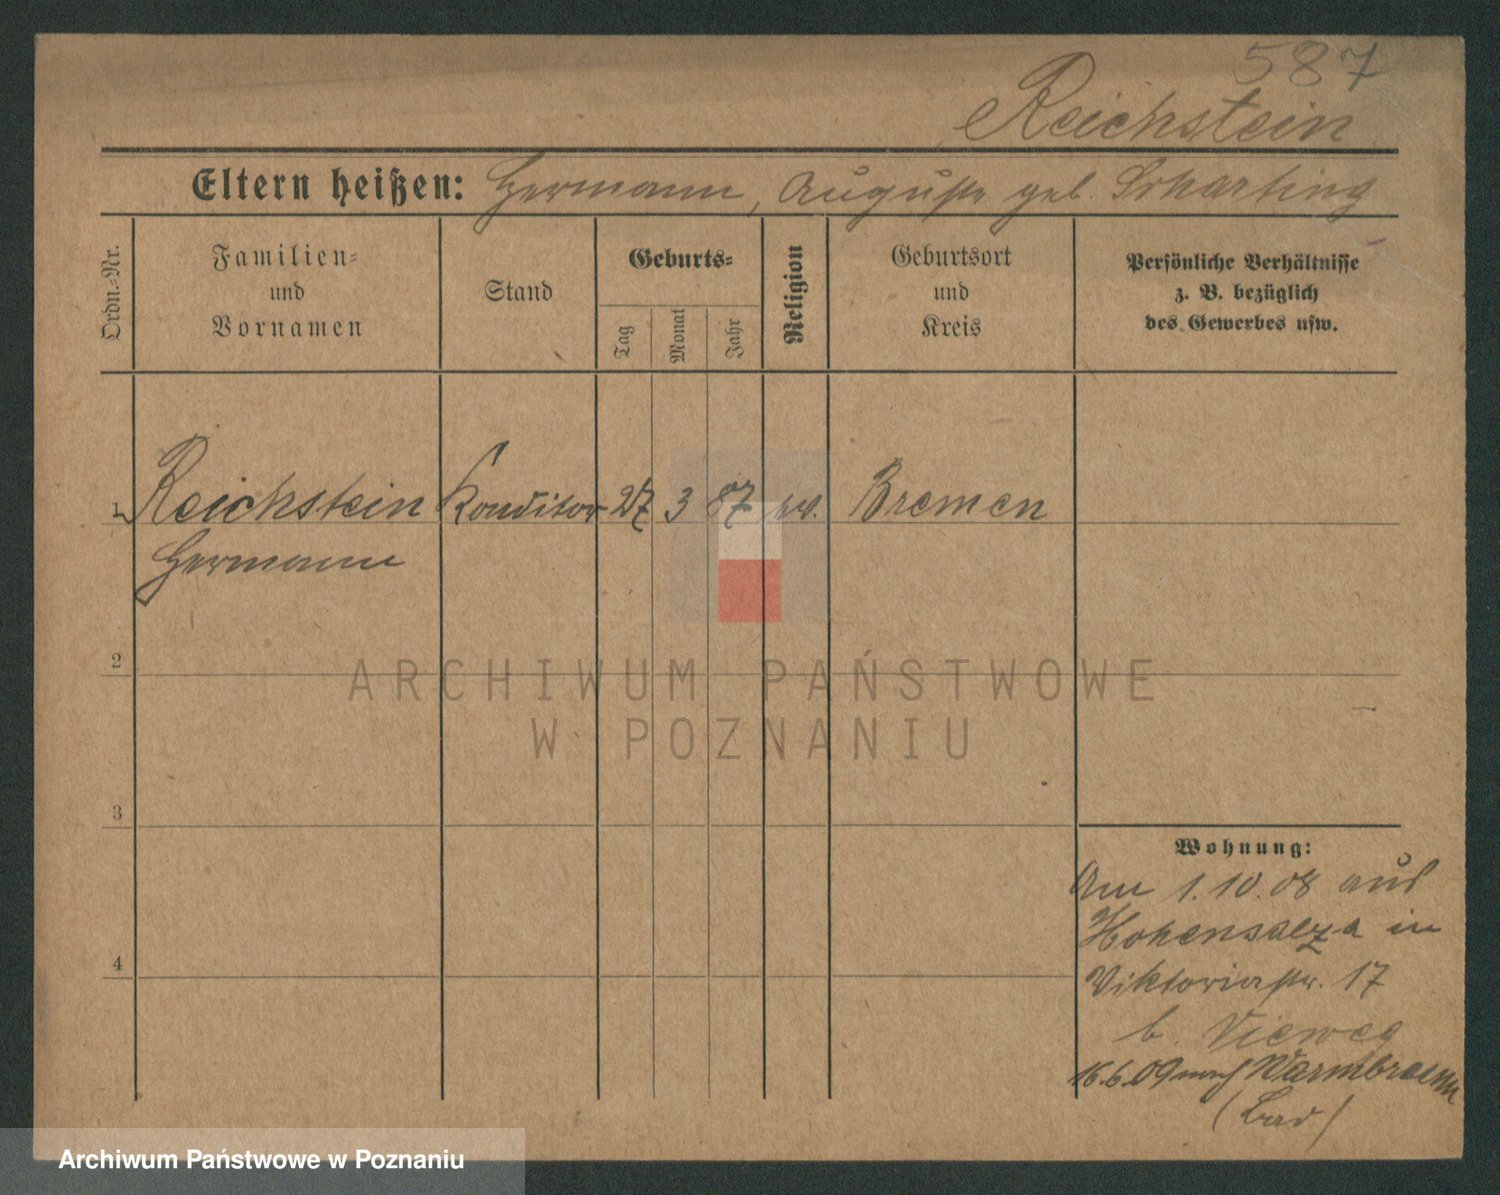 587
Reichstein
Eltern heißen: Hermann, Auguste geb.
Ordn.-Nr.
Familien-
und
Vornamen
Stand
Geburts-
Tag
Monat
Jahr
Religion
Geburtsort
und
Kreis
Persönliche Verhältnisse
z. B. bezüglich
des Gewerbes usw.
1 Reichstein Konditor 27 3 87 ev. Bremen
Hermann
2
ARCHIWUM PAŃSTWOWE
W POZNANIU
3
Wohnung:
Am 1.10.08 aus
Hohensalza in
4
Viktoriastr. 17
b. Vieweg
16.6.09 nach Warmbrunn
(Bad)
Archiwum Państwowe w Poznaniu